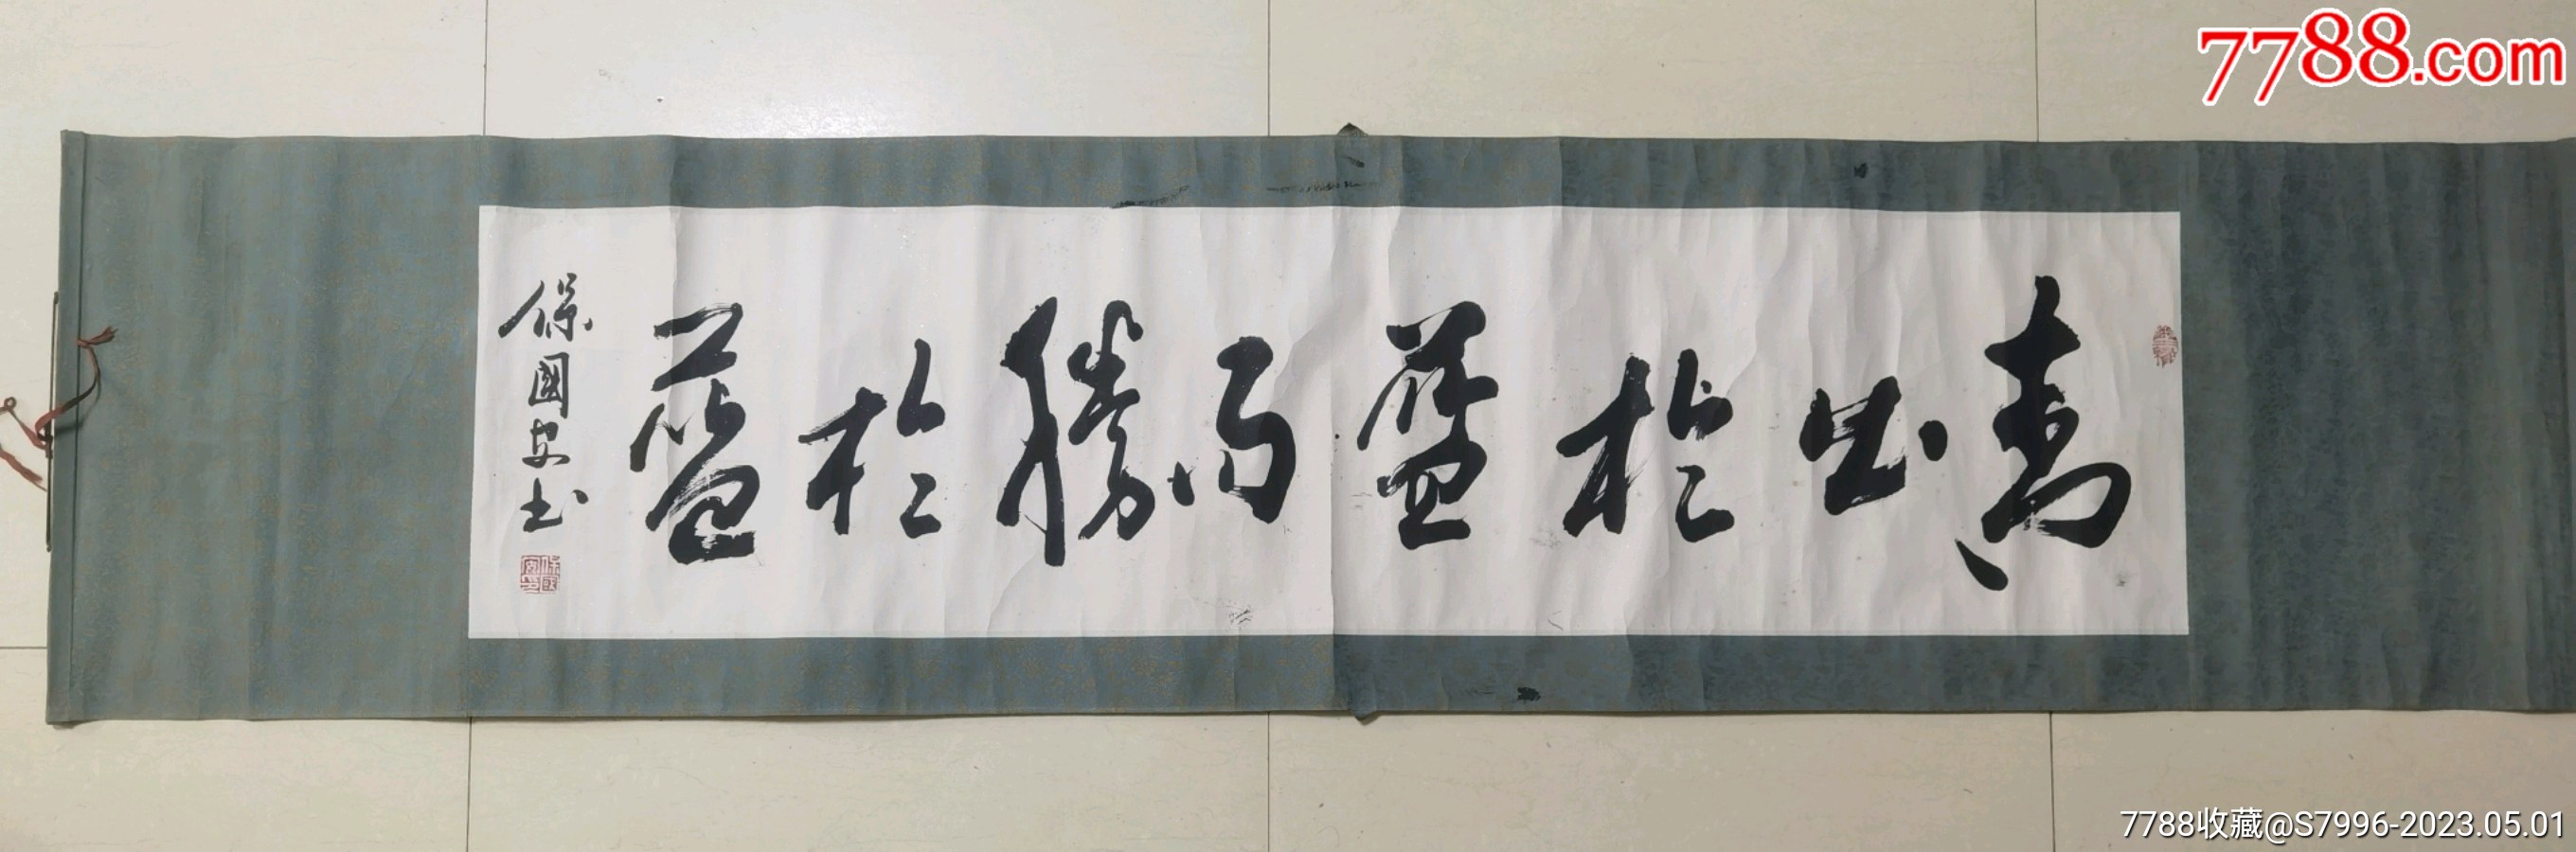 7788.com
青出於藍而勝於藍
保國安书
保國安印
7788收藏@S7996-2023.05.01